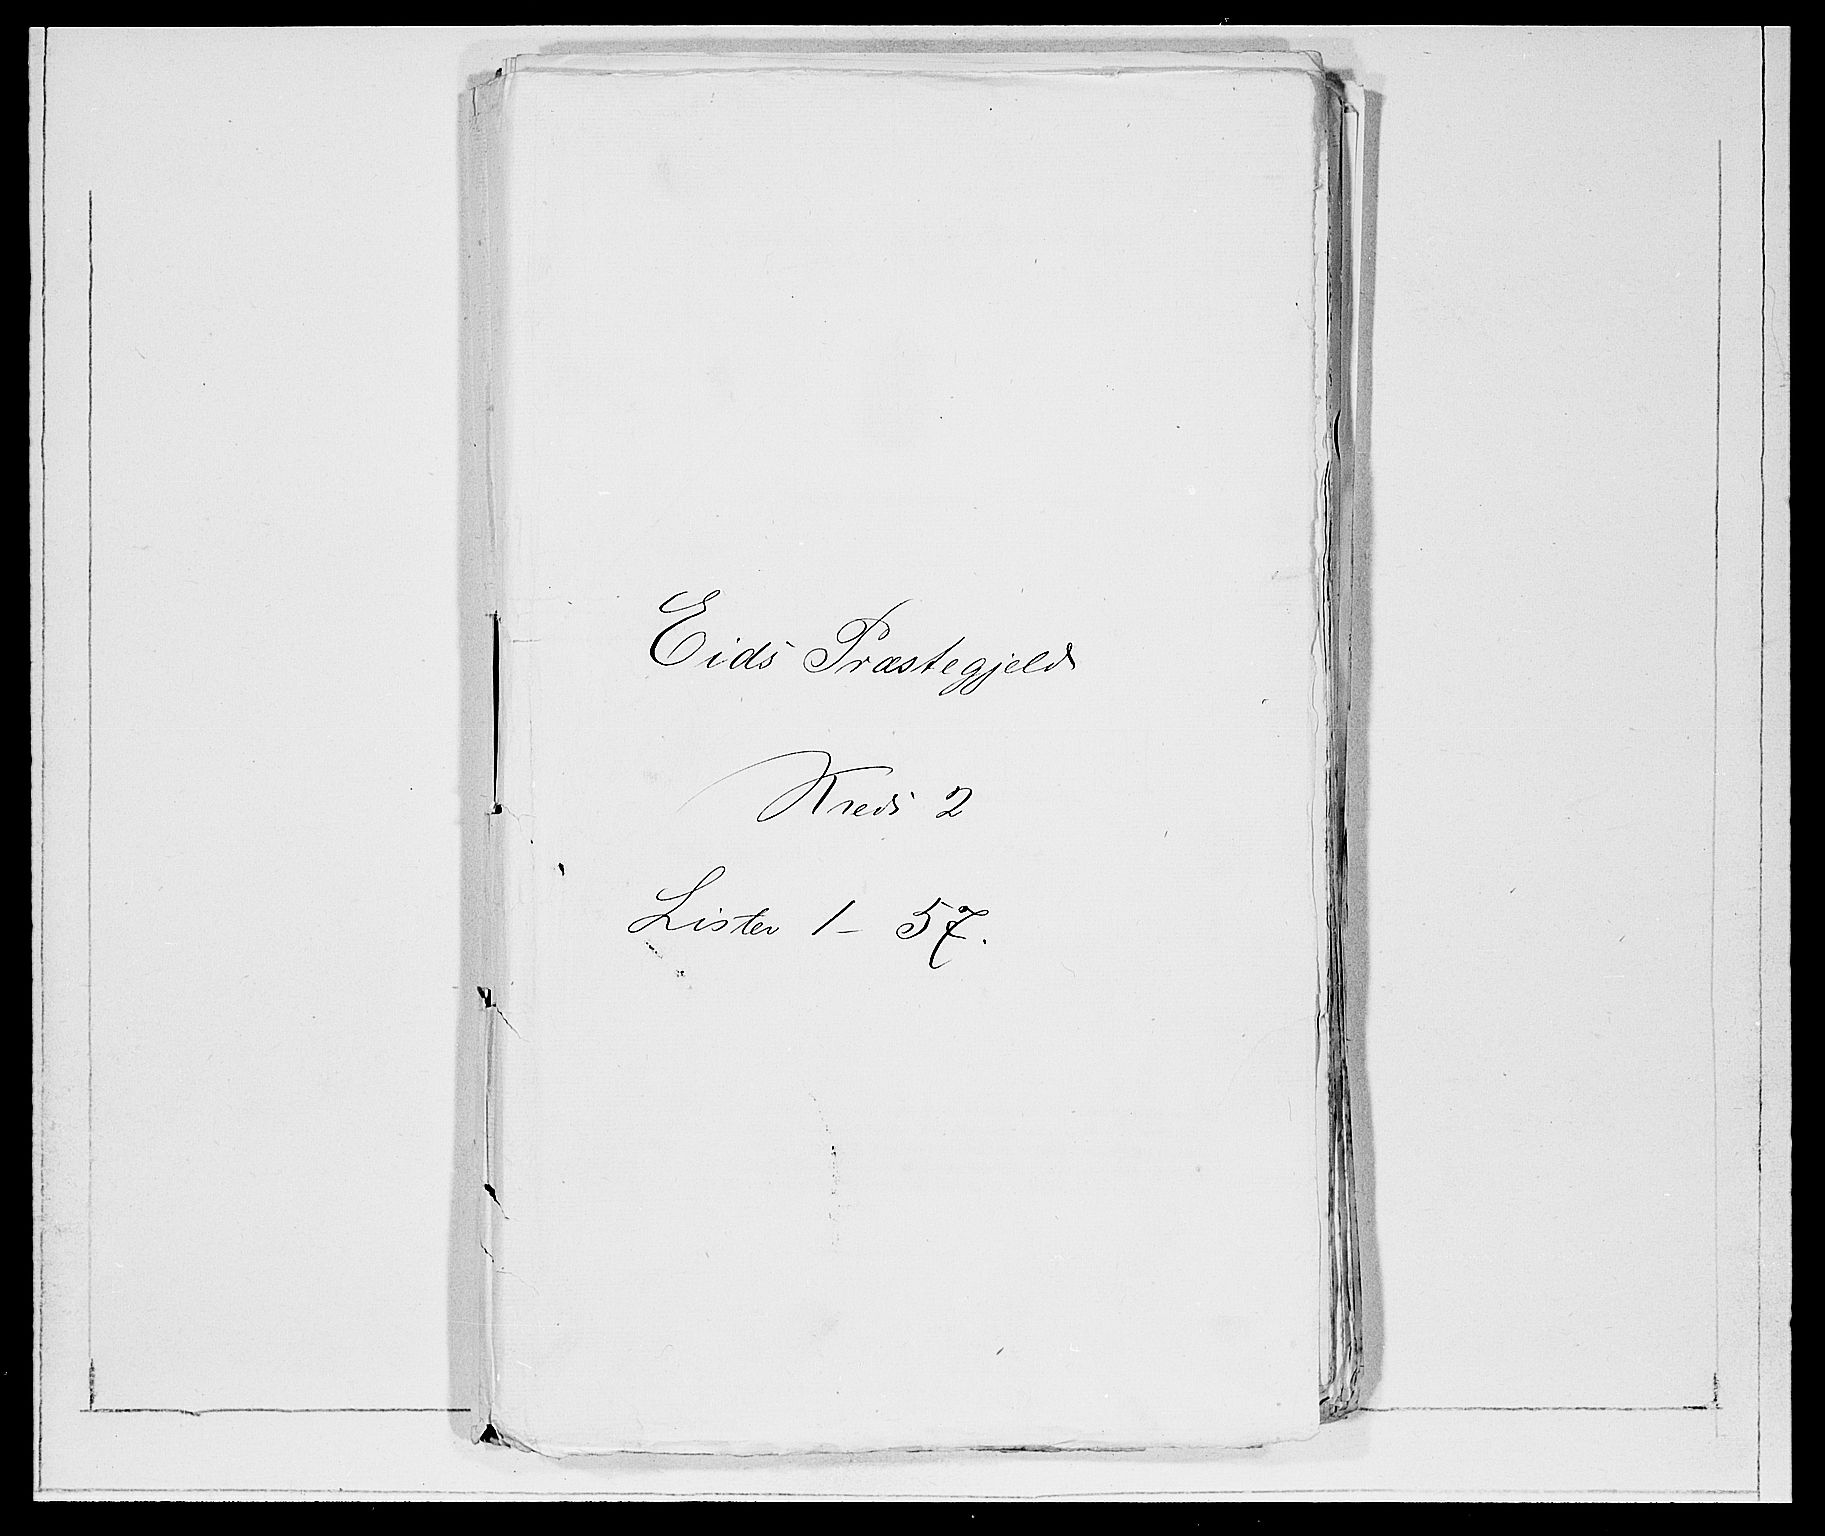 Eids Præstegjeld
Kreds 2
Lister 1 - 57.